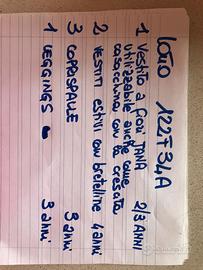 LOTTO 122F34A
1 VESTITO A FIORI TAPA 2/3 ANNI
UTILIZZABILE ANCHE COME
CASACCHINA CON LA CRESCITA
2 VESTITI ESTIVI CON BRETELLINE 4 ANNI
3 COPRISPALLE 3 ANNI
1 LEGGINGS 3 ANNI